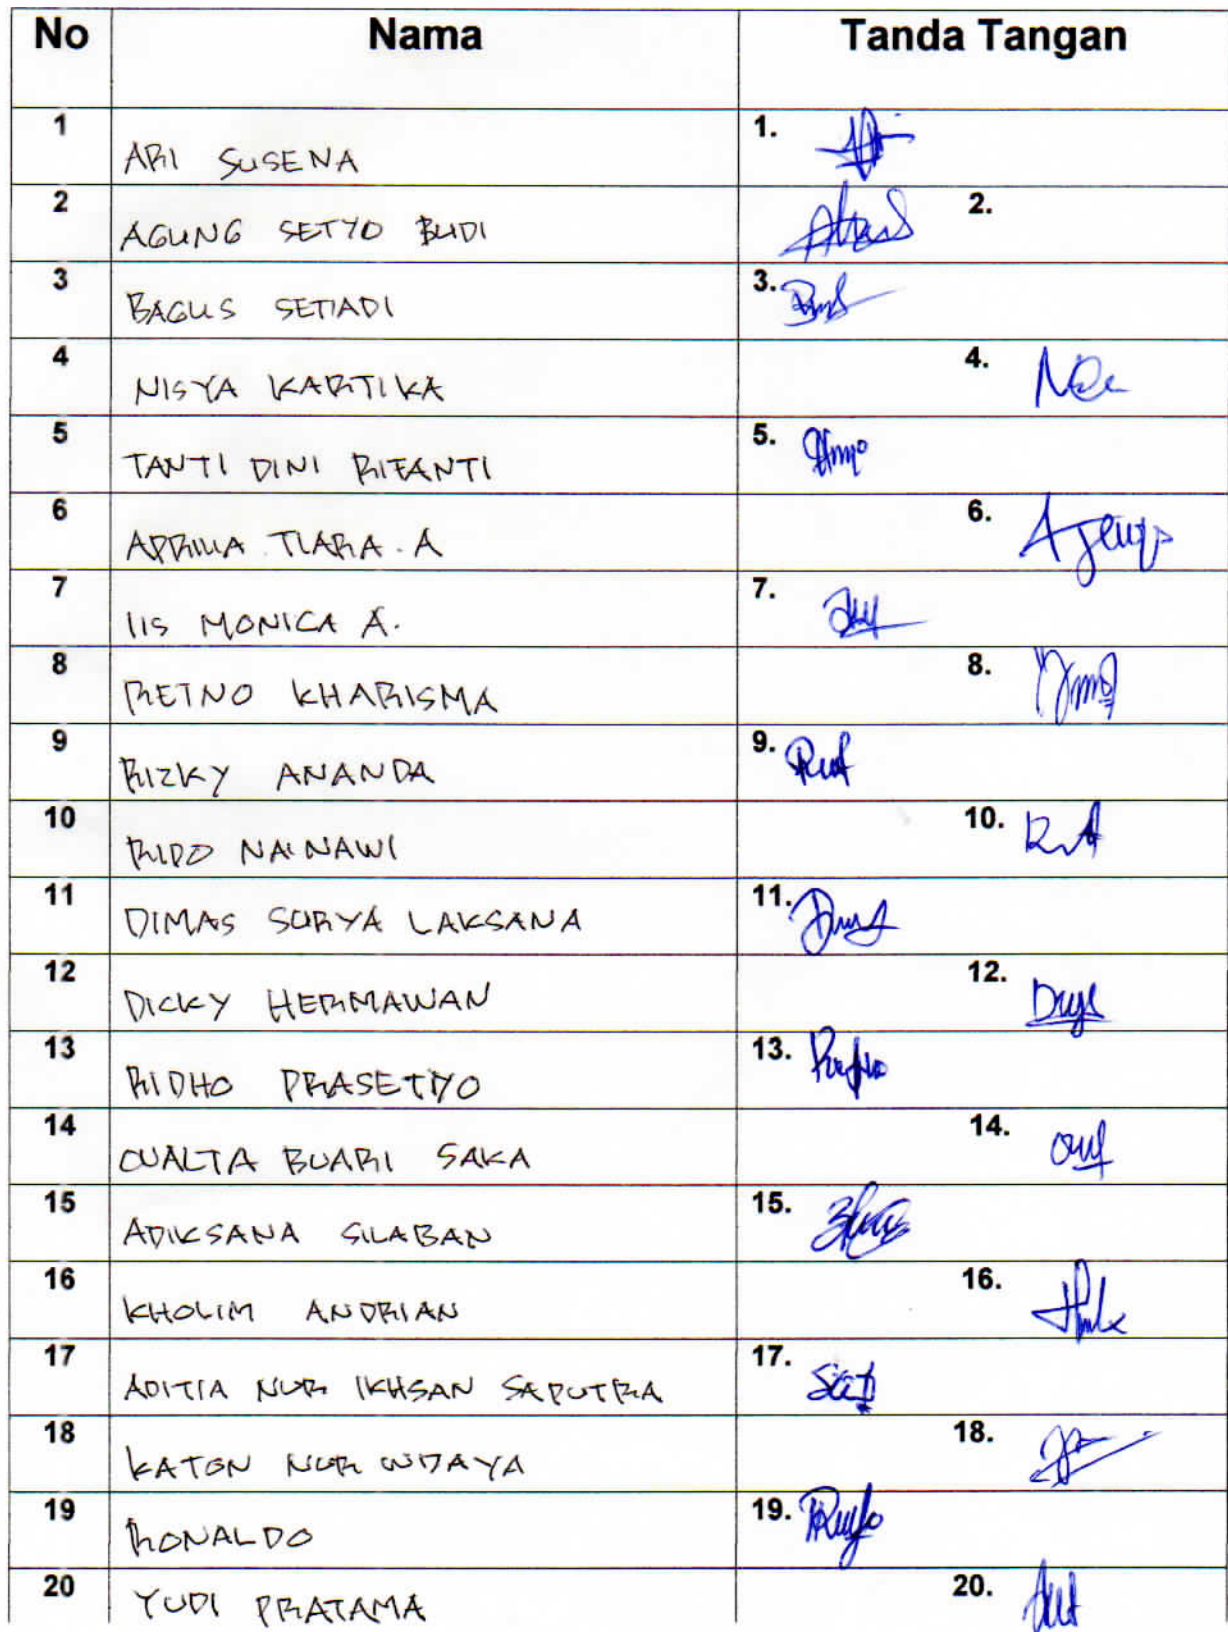 No Nama Tanda Tangan
1 ARI SUSENA 1.
2 AGUNG SETYO BUDI 2.
3 BAGUS SETIADI 3.
4 NISYA KARTIKA 4.
5 TANTI DINI RIFANTI 5.
6 APRILIA TIARA. A 6.
7 IIS MONICA A. 7.
8 RETNO KHARISMA 8.
9 RIZKY ANANDA 9.
10 RIDO NAINAWI 10.
11 DIMAS SURYA LAKSANA 11.
12 DICKY HERMAWAN 12.
13 RIDHO PRASETIYO 13.
14 OUALTA BUARI SAKA 14.
15 ADIKSANA SILABAN 15.
16 KHOLIM ANDRIAN 16.
17 ADITIA NUR IKHSAN SAPUTRA 17.
18 KATON NUR WIJAYA 18.
19 RONALDO 19.
20 YUDI PRATAMA 20.